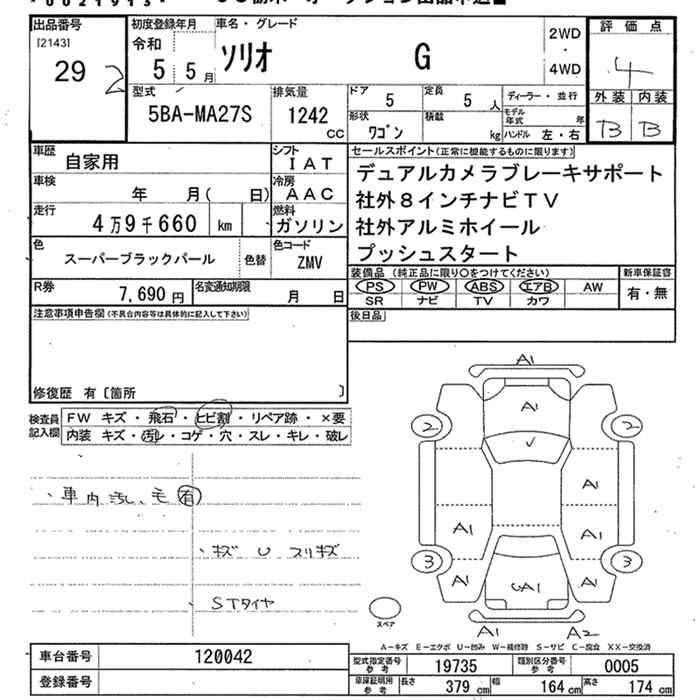 出品番号 初度登録年月 車名・グレード 2WD 評価点
[2143] 令和 ・
29 2 5 5月 ソリオ G 4WD 4
型式 排気量 ドア 5 定員 5 人 ディーラー・並行 外装 内装
5BA-MA27S 1242 cc 形状 ワゴン 積載 kg モデル年式 年 ハンドル 左・右 B B
車歴 自家用 シフト IAT セールスポイント(正常に機能するものに限ります)
車検 年 月( 日) 冷房 AAC デュアルカメラブレーキサポート
走行 4万9千660 km 燃料 ガソリン 社外8インチナビTV
社外アルミホイール
色 スーパーブラックパール 色替 色コード ZMV プッシュスタート
R券 7,690円 名変通知期限 月 日 装備品 (純正品に限り○をつけてください) 新車保証書
PS PW ABS エアB AW 有・無
SR ナビ TV カワ
注意事項申告欄(不具合内容等は具体的に記入して下さい) 後日品
修復歴 有〔箇所 〕
検査員記入欄 FW キズ・飛石・ヒビ割・リペア跡・×要
内装 キズ・汚レ・コゲ・穴・スレ・キレ・破レ
・車内汚レ毛有
・キズ U スリキズ
STタイヤ
A1
A1
2 U 2
A1
A1 A1
3 3
A1 A1
A1
スペア A1 A2
A-キズ E-エクボ U-凹み W-補修跡 S-サビ C-腐食 XX-交換済
車台番号 120042 型式指定番号参考 19735 類別区分番号参考 0005
登録番号 車庫証明用参考 長さ 379 cm 幅 164 cm 高さ 174 cm